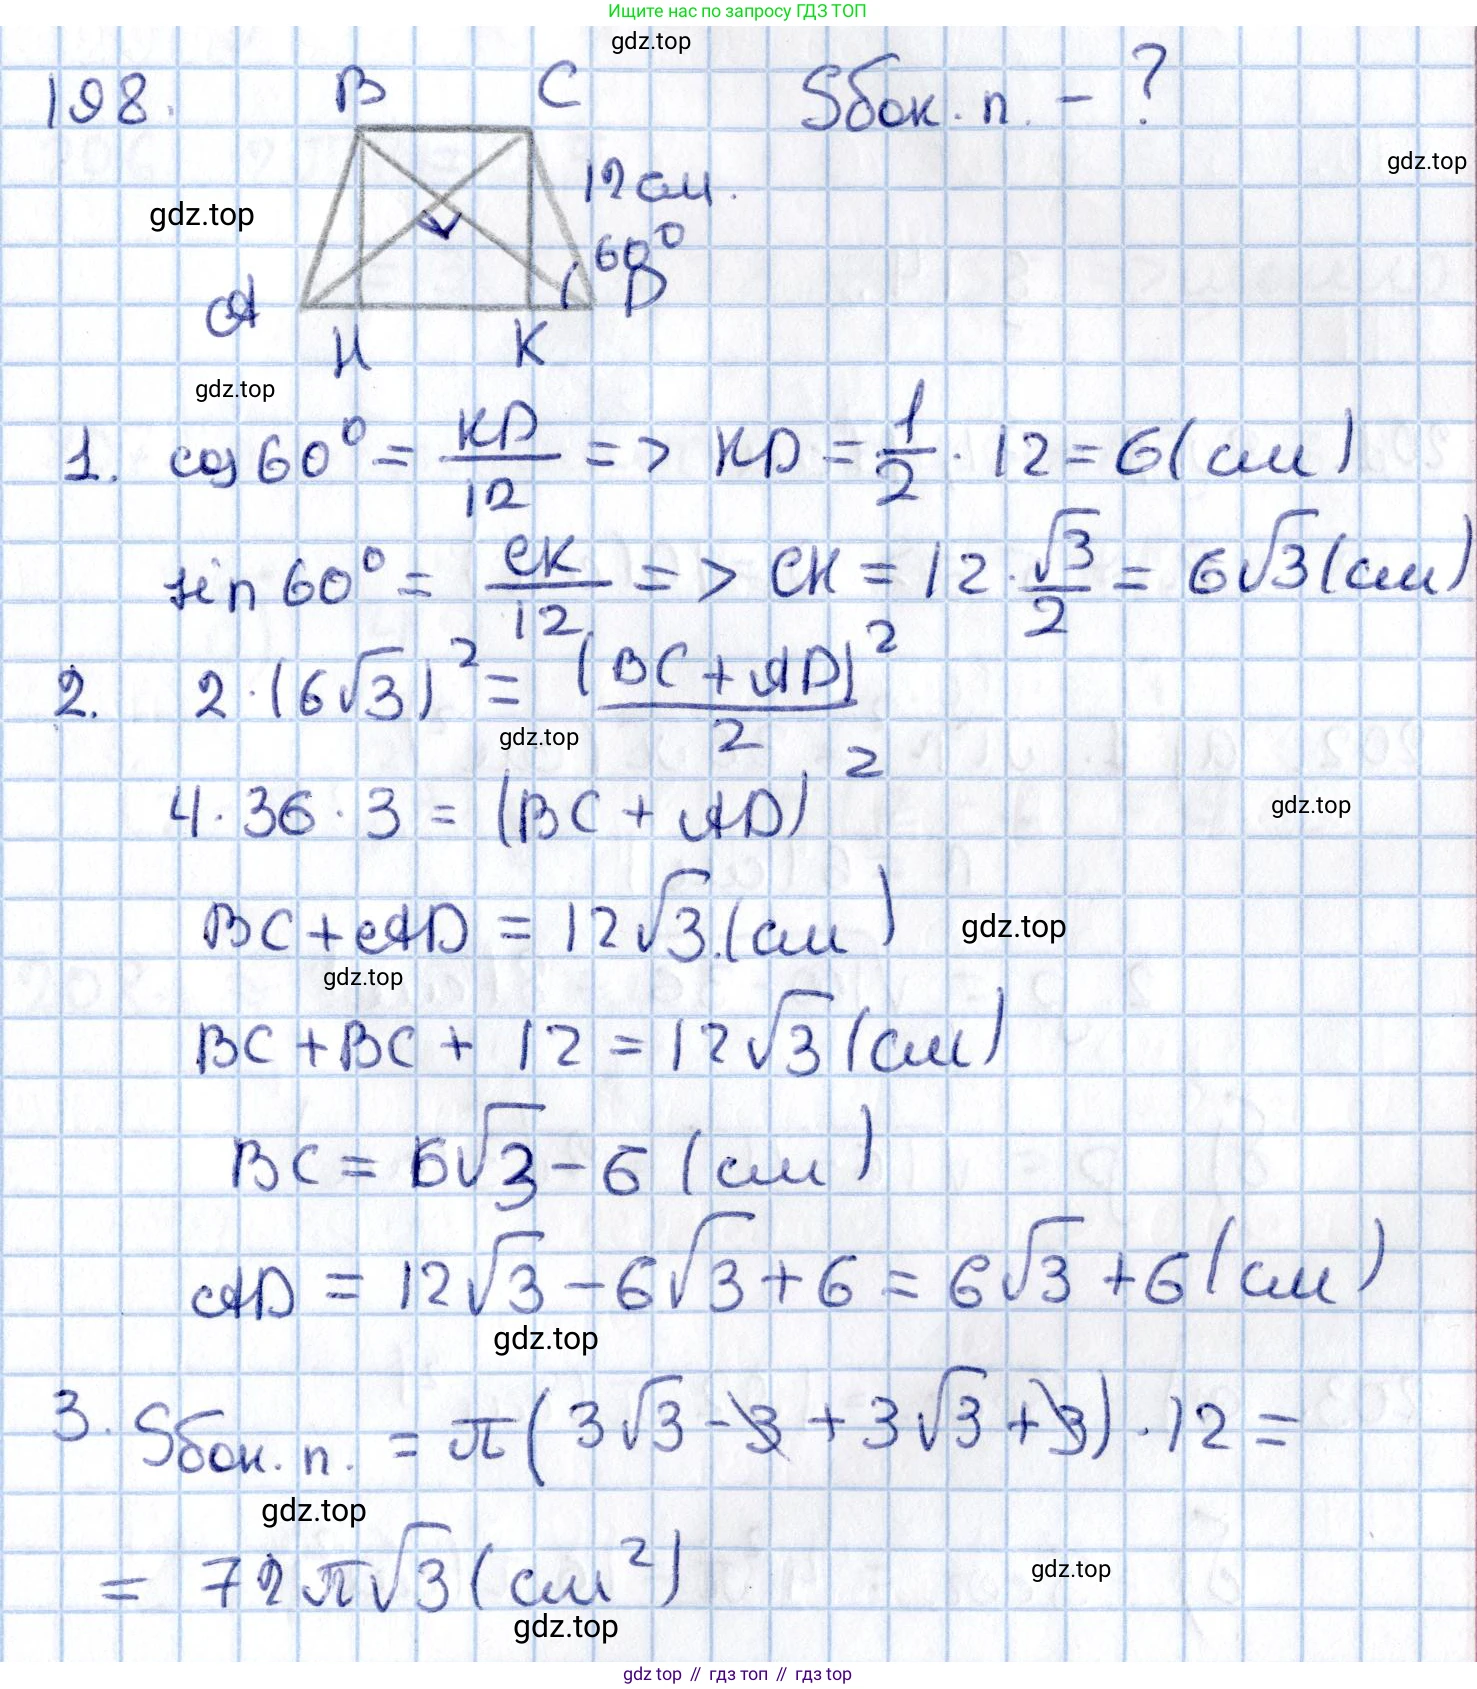 Ищите нас по запросу ГДЗ ТОП
gdz.top
198. B C Sбок. п. - ?
gdz.top
12 см.
gdz.top
60°
A D
H K
gdz.top
1. cos 60° = KD/12 => KD = 1/2 · 12 = 6 (см)
sin 60° = CK/12 => CK = 12 · √3/2 = 6√3 (см)
2. 2 · (6√3)² = (BC + AD)²/2
gdz.top
4 · 36 · 3 = (BC + AD)²
gdz.top
BC + AD = 12√3 (см)
gdz.top
gdz.top
BC + BC + 12 = 12√3 (см)
BC = 6√3 - 6 (см)
AD = 12√3 - 6√3 + 6 = 6√3 + 6 (см)
gdz.top
3. Sбок. п. = π(3√3 - 3 + 3√3 + 3) · 12 =
gdz.top
= 72π√3 (см²)
gdz.top
gdz.top
gdz top // гдз топ // гдз top